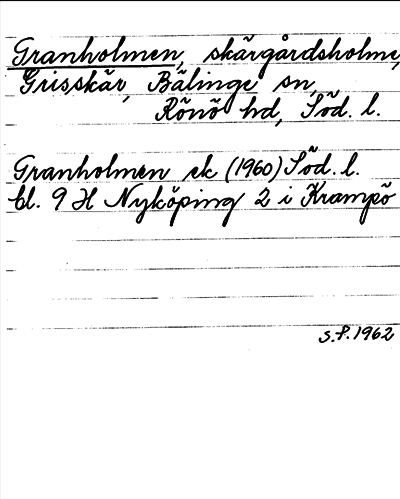 Granholmen, skärgårdsholme,
Grisskär, Bälinge sn,
Rönö hd, Söd. l.
Granholmen ek (1960) Söd. l.
bl. 9 H Nyköping 2 i Krampö
S.P. 1962